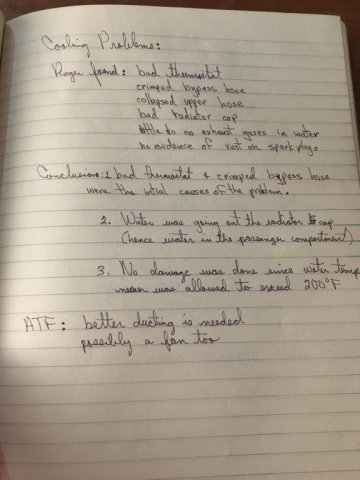 Cooling Problems:
Roger found: bad thermostat
crimped bypass hose
collapsed upper hose
bad radiator cap
little to no exhaust gases in water
no evidence of rust on spark plugs
Conclusions: 1 bad thermostat & crimped bypass hose
were the intial causes of the problem.
2. Water was going out the radiator cap
(hence water in the passenger compartment)
3. No damage was done since water temp
never was allowed to exceed 200°F
ATF: better ducting is needed
possibly a fan too